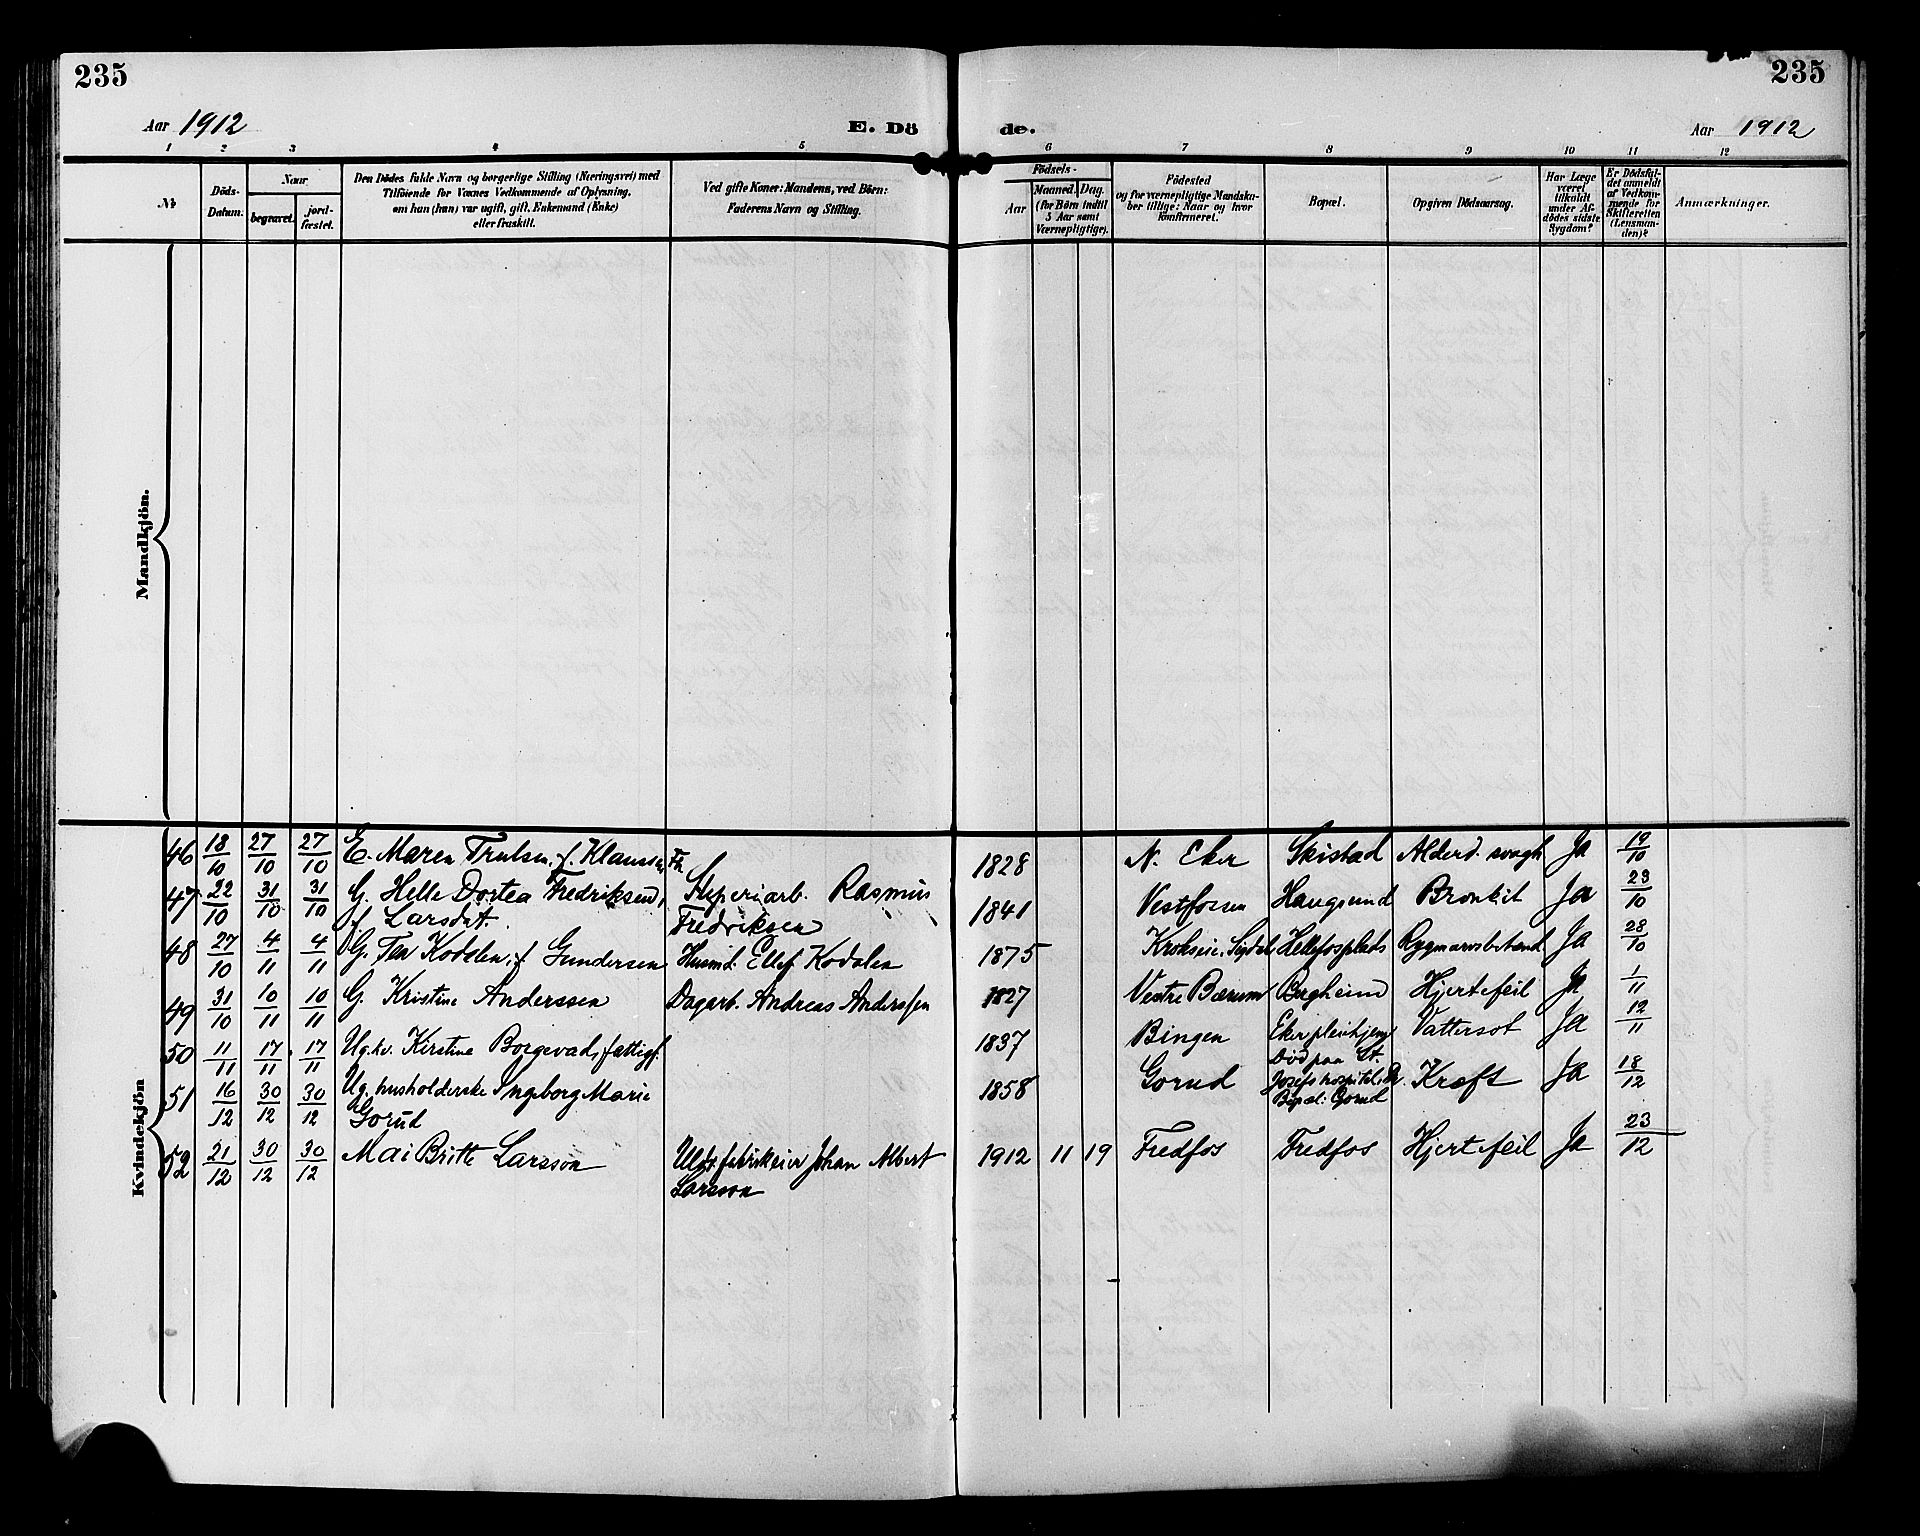 235
235
Aar 1912
E. Dö
de.
Aar 1912
1 2 3 4 5 6 7 8 9 10 11 12
№
Döds-
Datum.
Naar
begravet.
jord-
fæstet.
Den Dödes fulde Navn og borgerlige Stilling (Næringsvei) med
Tilföiende for Voxnes Vedkommende af Oplysning,
om han (hun) var ugift, gift, Enkemand (Enke)
eller fraskilt.
Ved gifte Koner: Mandens, ved Börn:
Faderens Navn og Stilling.
Födsels-
Aar
Maaned. Dag.
(for Börn indtil
5 Aar samt
Værnepligtige).
Födested
og for værnepligtige Mandska-
ber tillige: Naar og hvor
konfirmeret.
Bopæl.
Opgiven Dödsaarsag.
Har Læge
været
tilkaldt
under Af-
dödes sidste
Sygdom?
Er Dödsfal-
det anmeldt
af Vedkom-
mende for
Skifteretten
(Lensman-
den)?
Anmærkninger.
Mandkjön.
Kvindekjön
46 18/10 27/10 27/10 E. Maren Trulsen, f. Klaussen 1828 N. Eker Skistad Alderd. svagh Ja 19/10
47 22/10 31/10 31/10 G. Helle Dortea Fredriksen, Sliperiarb. Rasmus 1841 Vestfossen Haugsund Bronkit Ja 23/10
f. Larsdat. Fredriksen
48 27/10 4/11 4/11 G. Tea Kodalen, f. Gundersen Husmd. Ellef Kodalen 1875 Krokseie, Sigdal Hellefosplads Rygmarvsbetænd Ja 28/10
49 31/10 10/11 10/11 G. Kristine Anderssen Dagarb. Andreas Anderssen 1827 Vestre Bærum Bergheim Hjertefeil Ja 1/11
50 11/11 17/11 17/11 Ug. kv. Kirstine Borgevad, fattigf. 1837 Bingen Eker pleiehjem Vattersot Ja 12/11
51 16/12 30/12 30/12 Ug. husholderske Ingeborg Marie 1858 Gorud Död paa St.
Josefs hospital, Dr. Kræft Ja 18/12
Gorud Bopæl: Gorud
52 21/12 30/12 30/12 Mai Britte Larsson Uldv.fabrikeier Johan Albert 1912 11 19 Fredfos Fredfos Hjertefeil Ja 23/12
Larsson